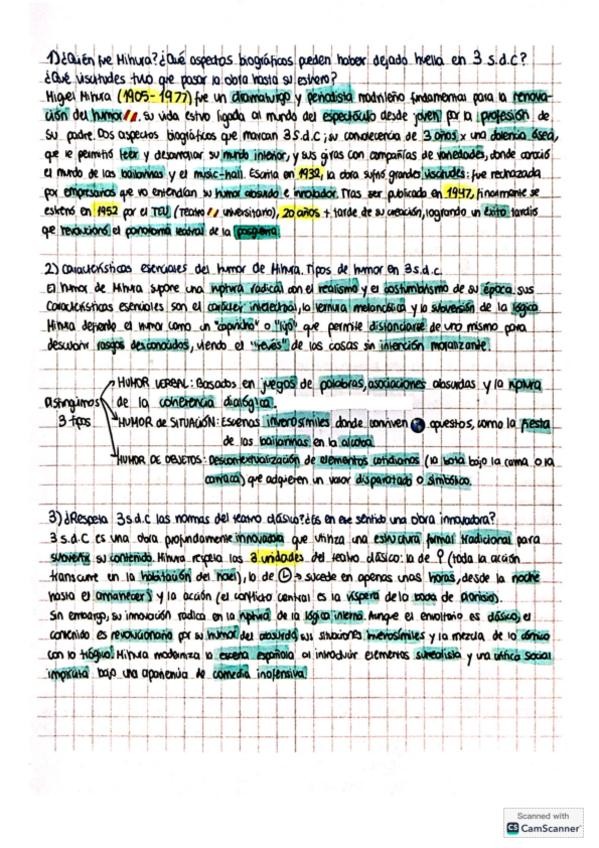 1) ¿Quién fue Mihura? ¿Qué aspectos biográficos pueden haber dejado huella en 3 s.d.c?
¿Qué visicitudes tuvo que pasar la obra hasta su estreno?
Miguel Mihura (1905-1977) fue un dramaturgo y periodista madrileño fundamental para la renova-
ción del humor. su vida estuvo ligada al mundo del espectáculo desde joven por la profesión de
su padre. Dos aspectos biográficos que marcan 3 S.d.C; su convalecencia de 3 años x una dolencia ósea,
que le permitió leer y desarrollar su mundo interior, y sus giras con compañías de variedades, donde conoció
el mundo de las bailarinas y el music-hall. Escrita en 1932, la obra sufrió grandes visicitudes: fue rechazada
por empresarios que no entendían su humor absurdo e innovador. Tras ser publicada en 1947, finalmente se
estrenó en 1952 por el TEU (Teatro universitario), 20 años + tarde de su creación, logrando un éxito tardío
que revolucionó el panorama teatral de la posguerra.
2) Características esenciales del humor de Mihura. Tipos de humor en 3 s.d.c.
El humor de Mihura supone una ruptura radical con el realismo y el costumbrismo de su época. sus
características esenciales son el carácter intelectual, la ternura melancólica y la subversión de la lógica.
Mihura defiende el humor como un "capricho" o "lujo" que permite distanciarse de uno mismo para
descubrir rasgos desconocidos, viendo el "revés" de las cosas sin intención moralizante.
HUMOR VERBAL: Basados en juegos de palabras, asociaciones absurdas y la ruptura
distinguimos de la coherencia dialógica.
3 tipos HUMOR de SITUACIÓN: Escenas inverosímiles donde conviven opuestos, como la fiesta
de las bailarinas en la alcoba.
HUMOR DE OBJETOS: Descontextualización de elementos cotidianos (la bota bajo la cama o la
carraca) que adquieren un valor disparatado o simbólico.
3) ¿Respeta 3 s.d.c las normas del teatro clásico? ¿es en ese sentido una obra innovadora?
3 s.d.C es una obra profundamente innovadora que utiliza una estructura formal tradicional para
subvertir su contenido. Mihura respeta las 3 unidades del teatro clásico: la de (toda la acción
transcurre en la habitación del hotel), la de → sucede en apenas unas horas, desde la noche
hasta el amanecer) y la acción (el conflicto central es la víspera de la boda de Dionisio).
Sin embargo, su innovación radica en la ruptura de la lógica interna. Aunque el envoltorio es clásico, el
contenido es revolucionario por su humor del absurdo, sus situaciones inverosímiles y la mezcla de lo cómico
con lo trágico. Mihura moderniza la escena española al introducir elementos surrealista y una crítica social
implícita bajo una apariencia de comedia inofensiva.
Scanned with
CS CamScanner